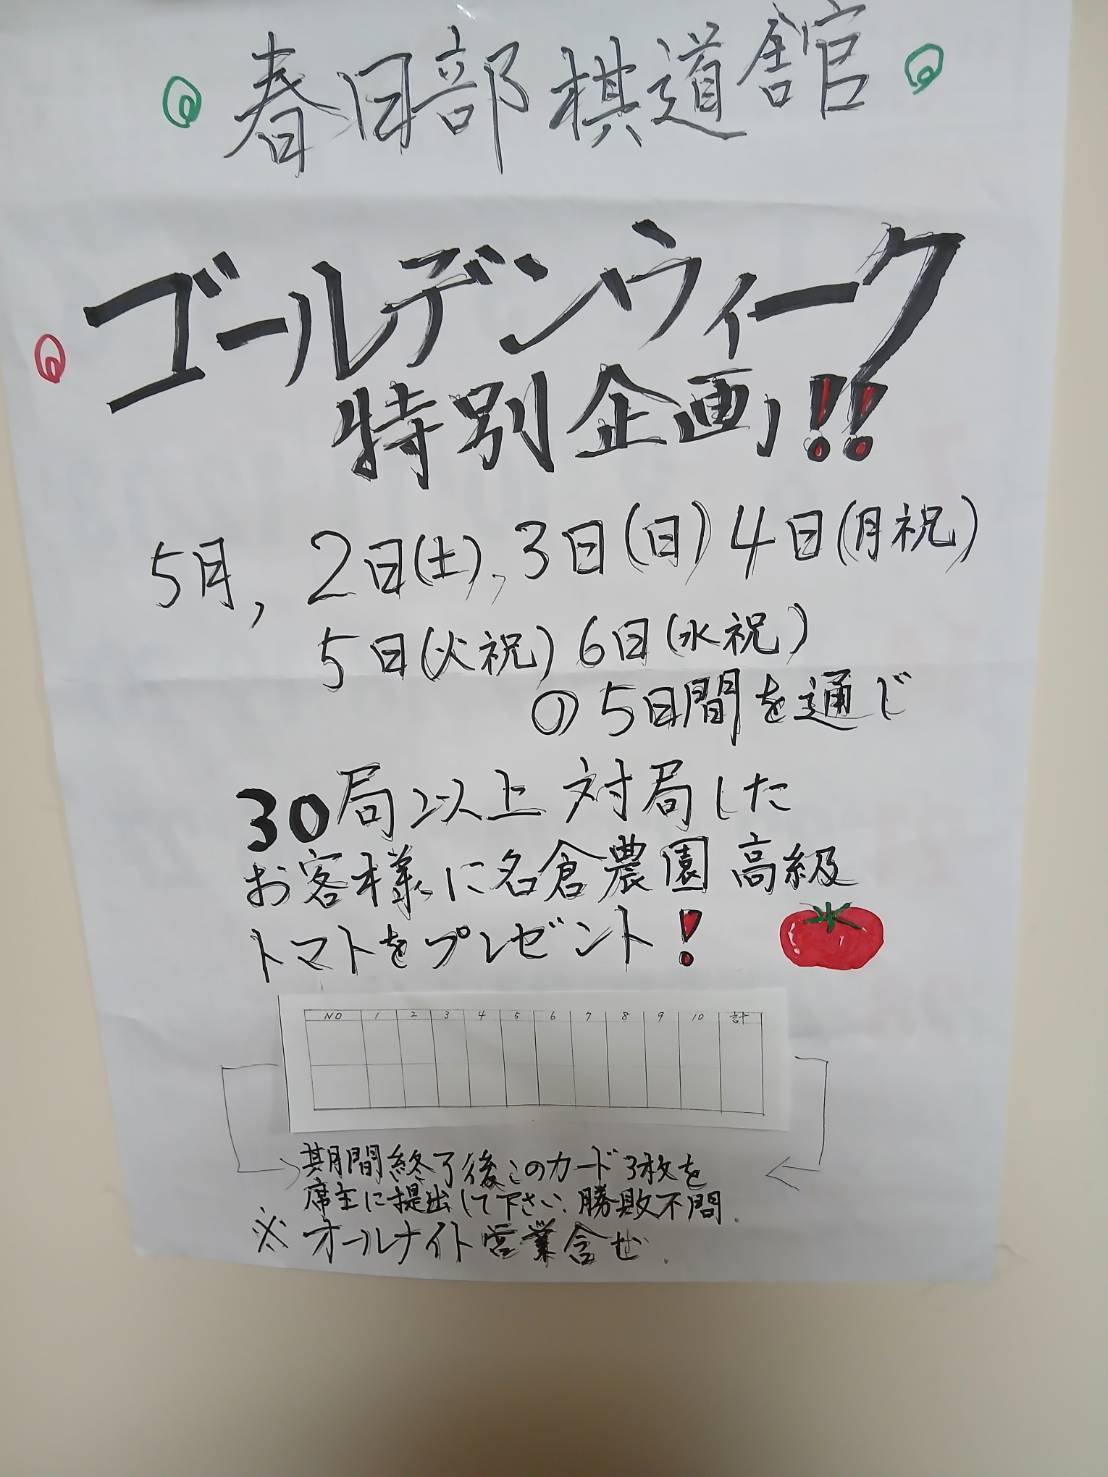 春日部棋道舘
ゴールデンウィーク
特別企画!!
5月, 2日(土), 3日(日) 4日(月祝)
5日(火祝) 6日(水祝)
の5日間を通じ
30局以上対局した
お客様に名倉農園高級
トマトをプレゼント!
NO 1 2 3 4 5 6 7 8 9 10 計
期間終了後このカード3枚を
席主に提出して下さい.勝敗不問.
※オールナイト営業含む.